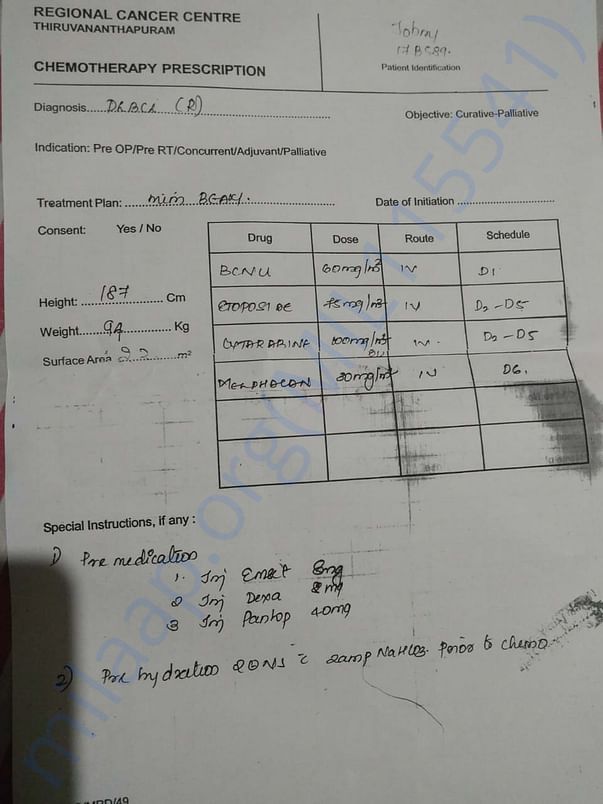 REGIONAL CANCER CENTRE
THIRUVANANTHAPURAM
CHEMOTHERAPY PRESCRIPTION
Johny
17 BC89.
Patient Identification
Diagnosis..... DLBCL (R)
Objective: Curative-Palliative
Indication: Pre OP/Pre RT/Concurrent/Adjuvant/Palliative
Treatment Plan: ..... mini BEAM.
Date of Initiation .....
Consent: Yes / No
Height: ..... 187 ..... Cm
Weight..... 94 ..... Kg
Surface Area 2.2 m²
Drug Dose Route Schedule
BCNU 60mg/m² IV D1
ETOPOSIDE 75mg/m² IV D2-D5
CYTARABINE 100mg/m² IV. D2-D5
MELPHALAN 30mg/m² IV D6.
Special Instructions, if any :
1) Pre medication
1. Inj Emset 8mg
2 Inj Dexa 8mg
3 Inj Pantop 40mg
2) Pre hydration NS c 2amp NaHCO3. Prior to chemo
milaap.org(MIL115541)